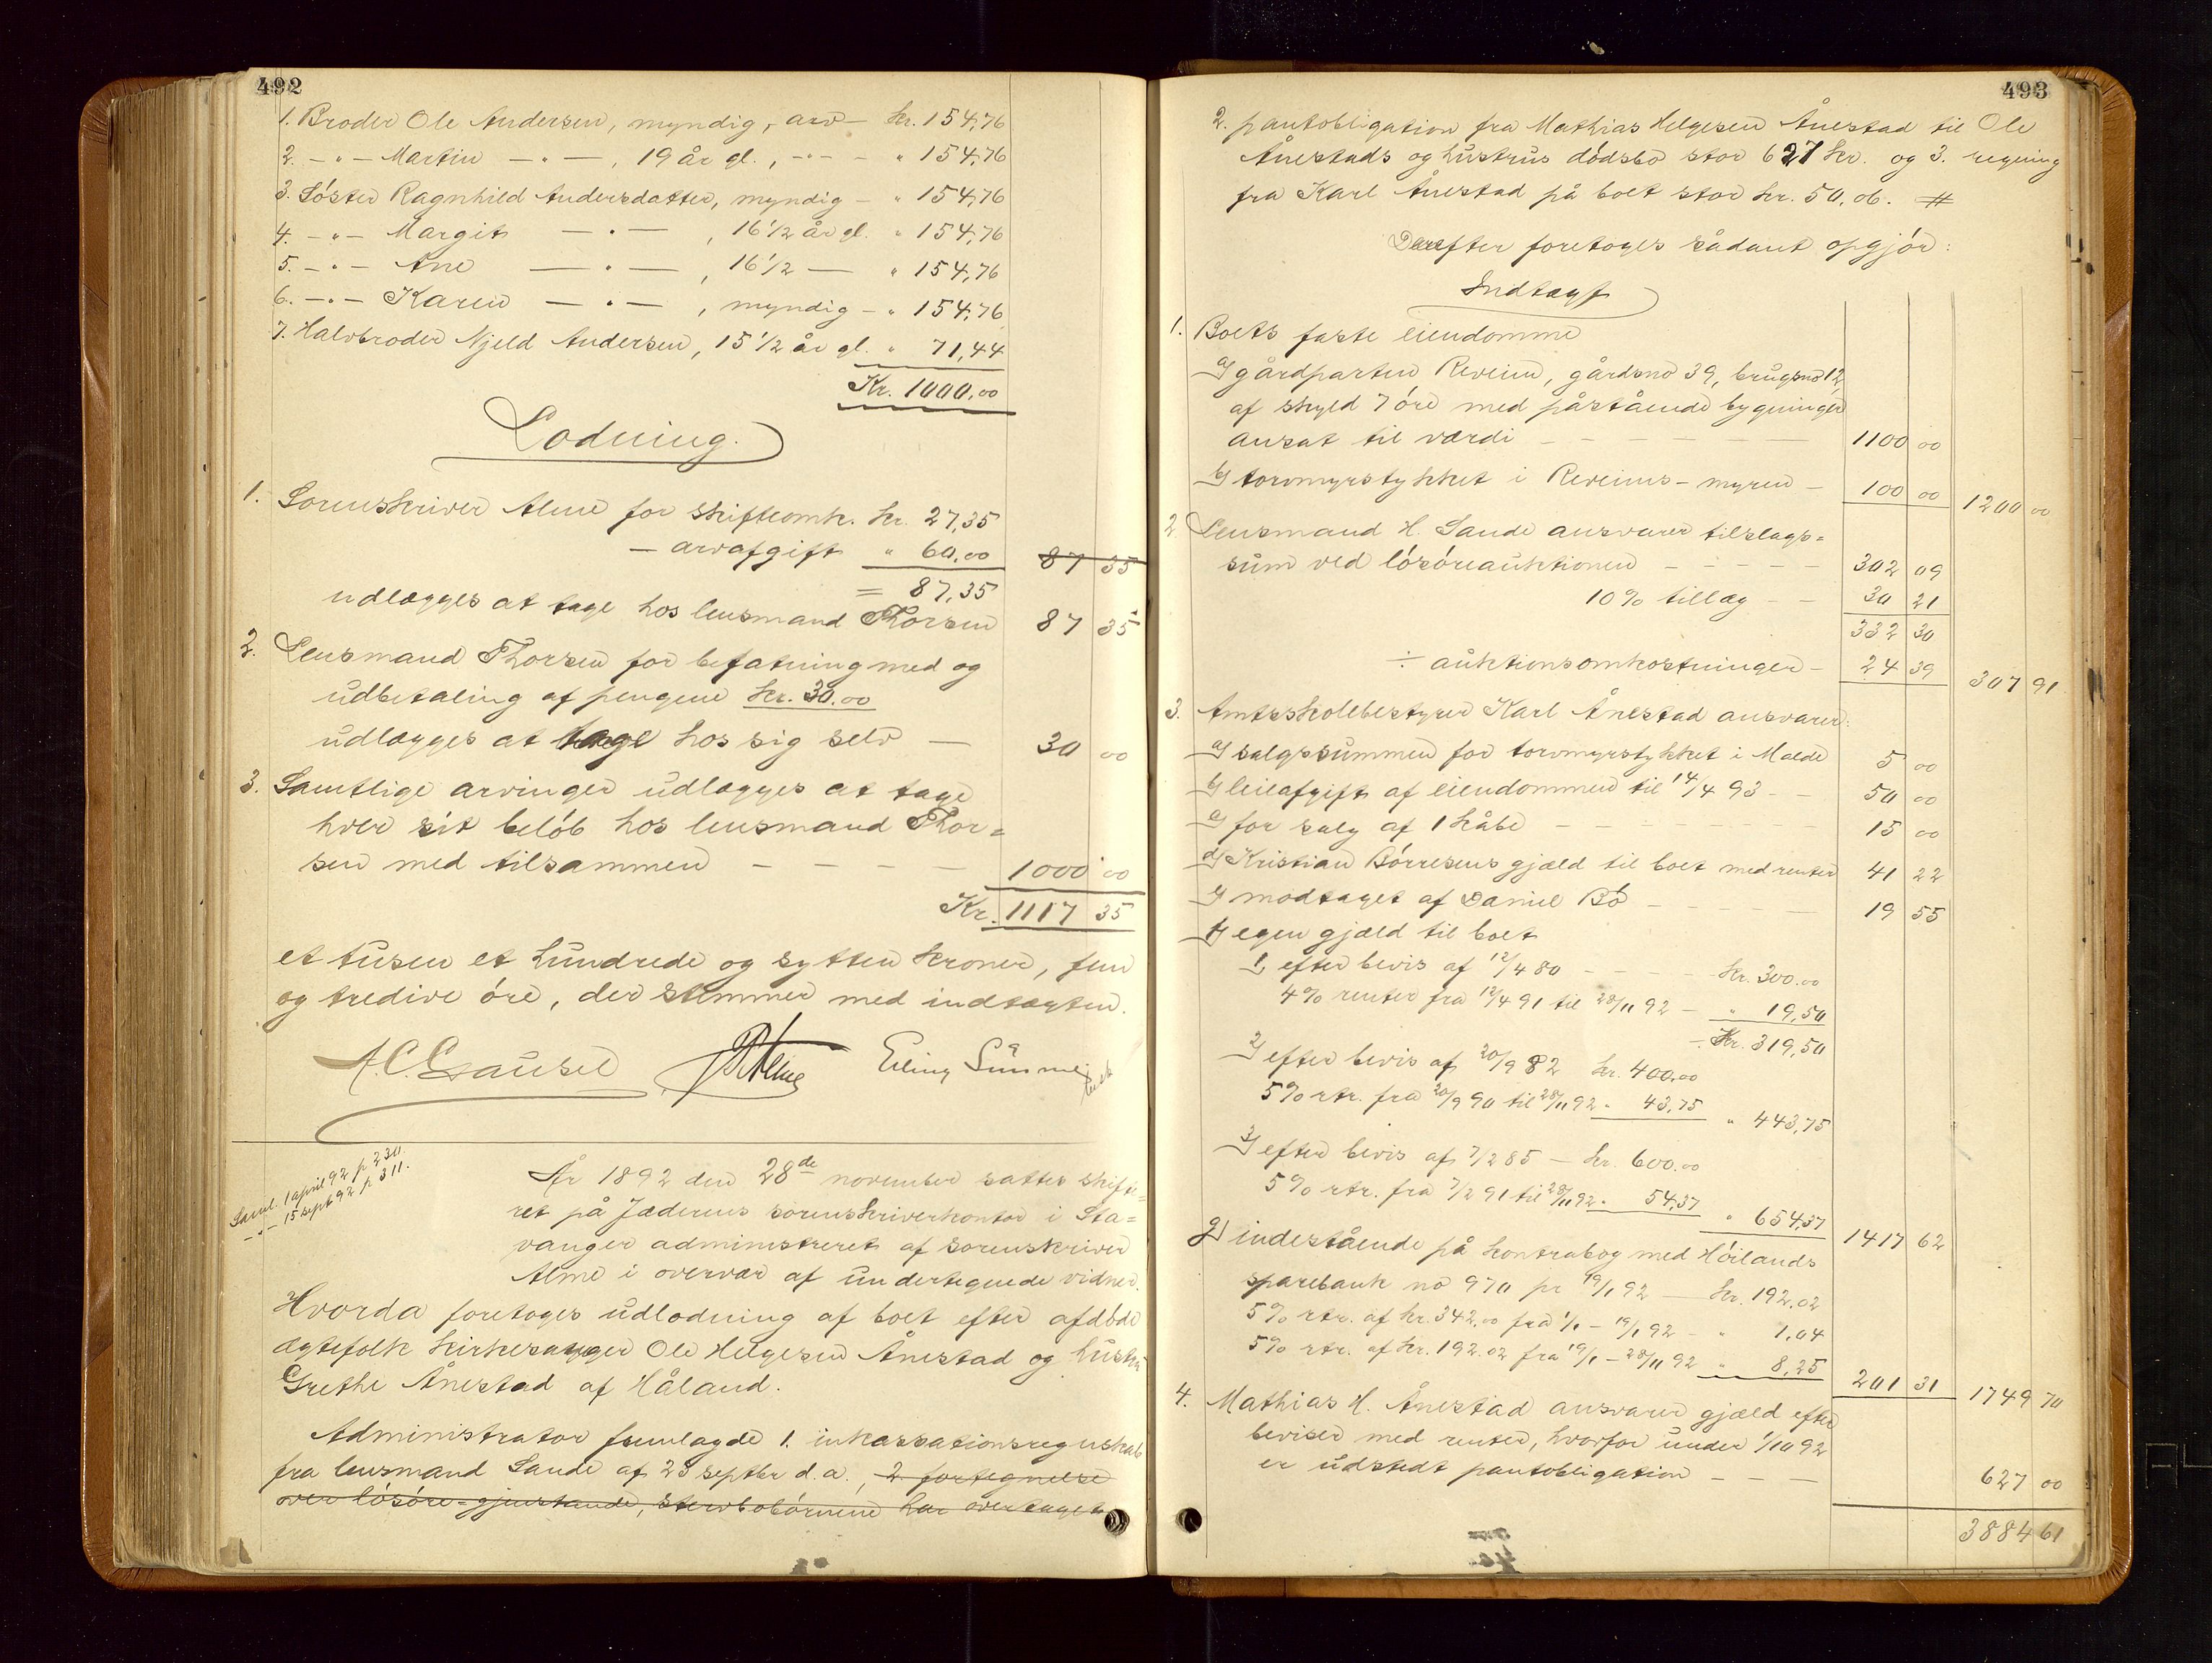 492
1. Broder Ole Andersen, myndig, arv — kr. 154,76
2. — " — Martin — " —, 19 år gl., — " — " 154,76
3. Søster Ragnhild Andersdatter, myndig — " 154,76
4. — " — Margit — " —, 16 1/2 år gl. " 154,76
5. — " — Ane — " —, 16 1/2 — " 154,76
6. — " — Karen — " —, myndig — " 154,76
7. Halvbroder Njeld Andersen, 15 1/2 år gl. " 71,44
Kr. 1000,00
Lodning.
1. Sorenskriver Alme for skifteomk. kr. 27,35
— arvafgift " 60,00 87 35
= 87,35
udlægges at tage hos lensmand Thorsen 87 35
2. Lensmand Thorsen for befatning med og
udbetaling af pengene kr. 30.00
udlægges at tage hos sig selv — 30 00
3. Samtlige arvinger udlægges at tage
hver sit beløb hos lensmand Thor=
sen med tilsammen — — — — 1000 00
Kr. 1117 35
et tusen et hundrede og sytten kroner, fem
og tredive øre, der stemmer med indtægten.
A. C. Gausel Alme Erling Sunme
Saml. 1 april 92 p 230.
— " — 15 sept 92 p 311.
År 1892 den 28de november sattes skifte=
ret på Jæderens sorenskriverkontor i Sta=
vanger administreret af sorenskriver
Alme i overvær af undertegnede vidner.
Hvorda foretoges udlodning af boet efter afdøde
ægtefolk kirkesanger Ole Helgesen Ånestad og hustru
Grethe Ånestad af Håland.
Administrator fremlagde 1. inkassationsregnskab
fra lensmand Sande af 23 septbr d.a., 2. fortegnelse
over løsøre-gjenstande, stervbobørnene har overtaget
493
2. pantobligation fra Mathias Helgesen Ånestad til Ole
Ånestads og hustrus dødsbo stor 627 kr. og 3. regning
fra Karl Ånestad på boet stor kr. 50,06. #
Derefter foretoges sådant opgjør:
Indtægt
1. Boets faste eiendomme
a) gårdparten Reveim, gårdsno 39, brugsno 12,
af skyld 7 øre med påstående bygninger
ansat til værdi — — — — — — 1100 00
b) torvmyrstykket i Reveims-myren — 100 00 1200 00
2. Lensmand H. Sande ansvarer tilslags=
sum ved løsøreauktionen — — — — — 302 09
10% tillæg — — 30 21
332 30
÷ auktionsomkostninger — 24 39 307 91
3. Amtsskolebestyrer Karl Ånestad ansvarer:
a) salgssummen for torvmyrstykket i Malde 5 00
b) leieafgift af eiendommen til 14/4 93 — — 50 00
c) for salg af 1 kåbe — — — — — — 15 00
d) Kristian Børresens gjæld til boet med renter 41 22
e) modtaget af Daniel Bø — — — — 19 55
f) egen gjæld til boet
1) efter bevis af 12/4 80 — — — — kr. 300.00
4% renter fra 12/4 91 til 28/11 92 — " 19,50
Kr. 319,50
2) efter bevis af 20/9 82 kr. 400.00
5% rtr. fra 20/9 90 til 28/11 92 " 43,75
" 443,75
3) efter bevis af 7/2 85 — kr. 600.00
5% rtr. fra 7/2 91 til 28/11 92 " 54,37
" 654,37 1417 62
g) indestående på kontrabog med Høilands
sparebank no 970 pr 19/1 92 — kr. 192.02
5% rtr. af kr. 342.00 fra 1/1 — 19/1 92 — " 1,04
5% rtr. af kr. 192.02 fra 19/1 — 28/11 92 " 8,25
201 31 1749 70
4. Mathias H. Ånestad ansvarer gjæld efter
beviser med renter, hvorfor under 1/10 92
er udstedt pantobligation — — — 627 00
3884 61